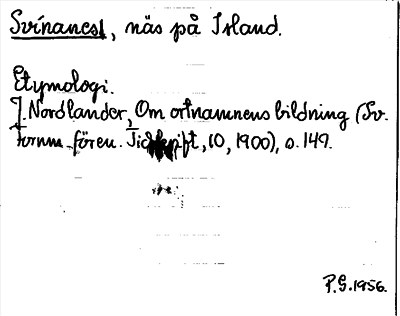 Svínanes, näs på Island.
Etymologi.
J. Nordlander, Om ortnamnens bildning (Sv.
fornm. fören. Tidskrift, 10, 1900), s. 149.
P.G. 1956.